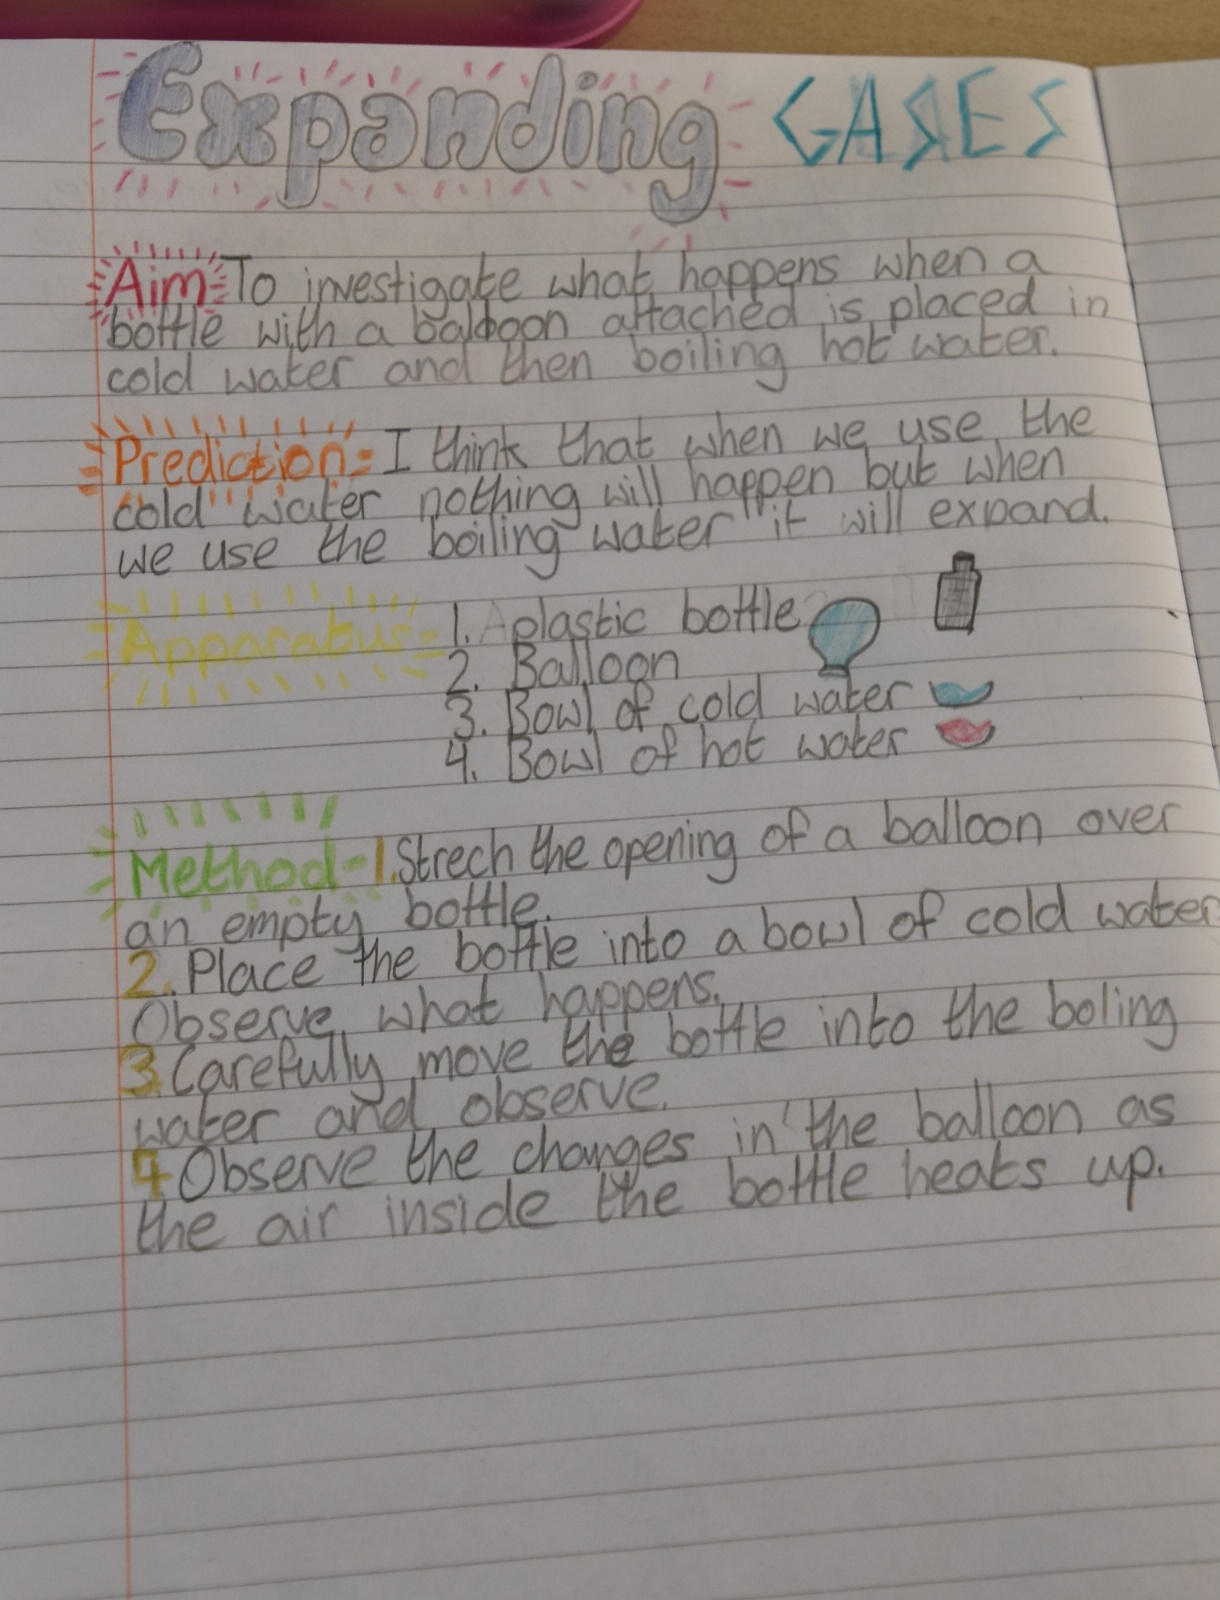 Expanding GASES
Aim: To investigate what happens when a
bottle with a balloon attached is placed in
cold water and then boiling hot water.
Prediction- I think that when we use the
cold water nothing will happen but when
we use the boiling water it will expand.
Apparatus- 1. plastic bottle
2. Balloon
3. Bowl of cold water
4. Bowl of hot water
Method-1. Strech the opening of a balloon over
an empty bottle.
2. Place the bottle into a bowl of cold water
Observe what happens.
3. Carefully move the bottle into the boling
water and observe.
4. Observe the changes in the balloon as
the air inside the bottle heats up.